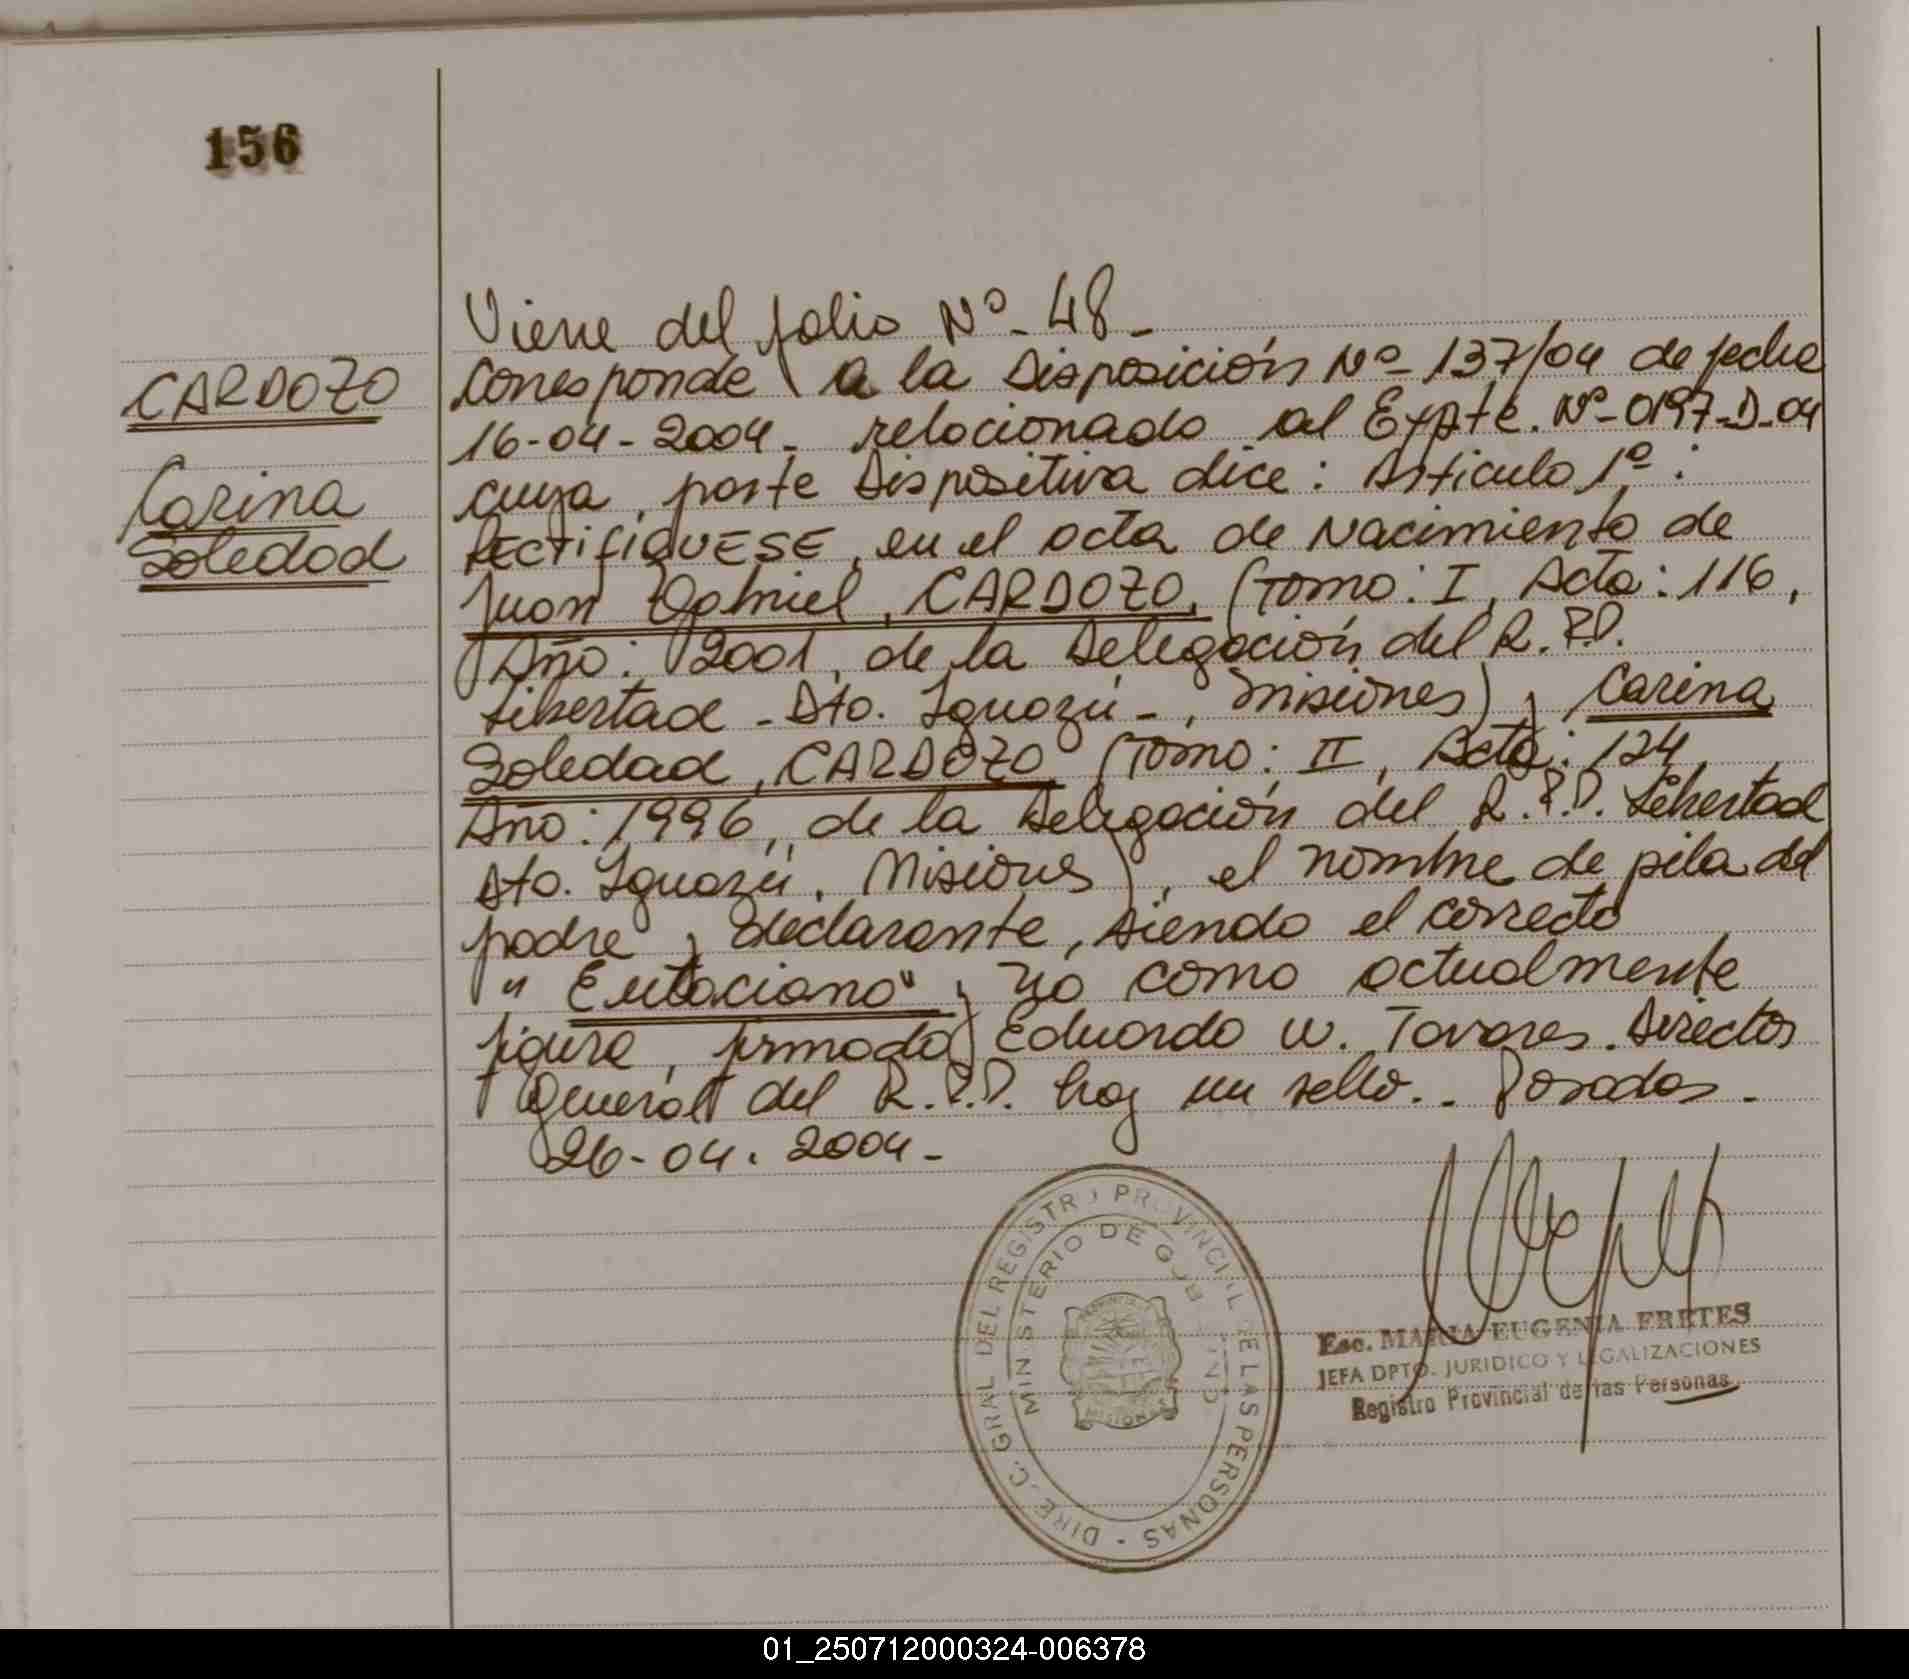 156
Viene del folio Nº- 48-
CARDOZO
Carina
Soledad
Corresponde a la Disposición Nº- 137/04 de fecha
16-04-2004- relacionado al Expte. Nº-0197-D-04
cuya, parte Dispositiva dice: Artículo 1º:
RECTIFIQUESE, en el acta de Nacimiento de
Juan Gabriel, CARDOZO, (Tomo: I, Acta: 116,
Año: 2001, de la Delegación del R.P.P.
Libertad - Dto. Iguazú-, Misiones) y Carina
Soledad, CARDOZO (Tomo: II, Acta: 124,
Año: 1996, de la Delegación del R.P.P. Libertad
Dto. Iguazú. Misiones), el nombre de pila del
padre y declarante, siendo el correcto
"Eutaciano" y no como actualmente
figura, firmado Eduardo W. Tavares. Director
General del R.P.P. hay un sello.- Posadas-
26-04-2004-
DIREC. GRAL. DEL REGISTRO PROVINCIAL DE LAS PERSONAS -
MINISTERIO DE GOBIERNO
PROVINCIA DE
MISIONES
Esc. MARIA EUGENIA FRETES
JEFA DPTO. JURIDICO Y LEGALIZACIONES
Registro Provincial de las Personas
01_250712000324-006378